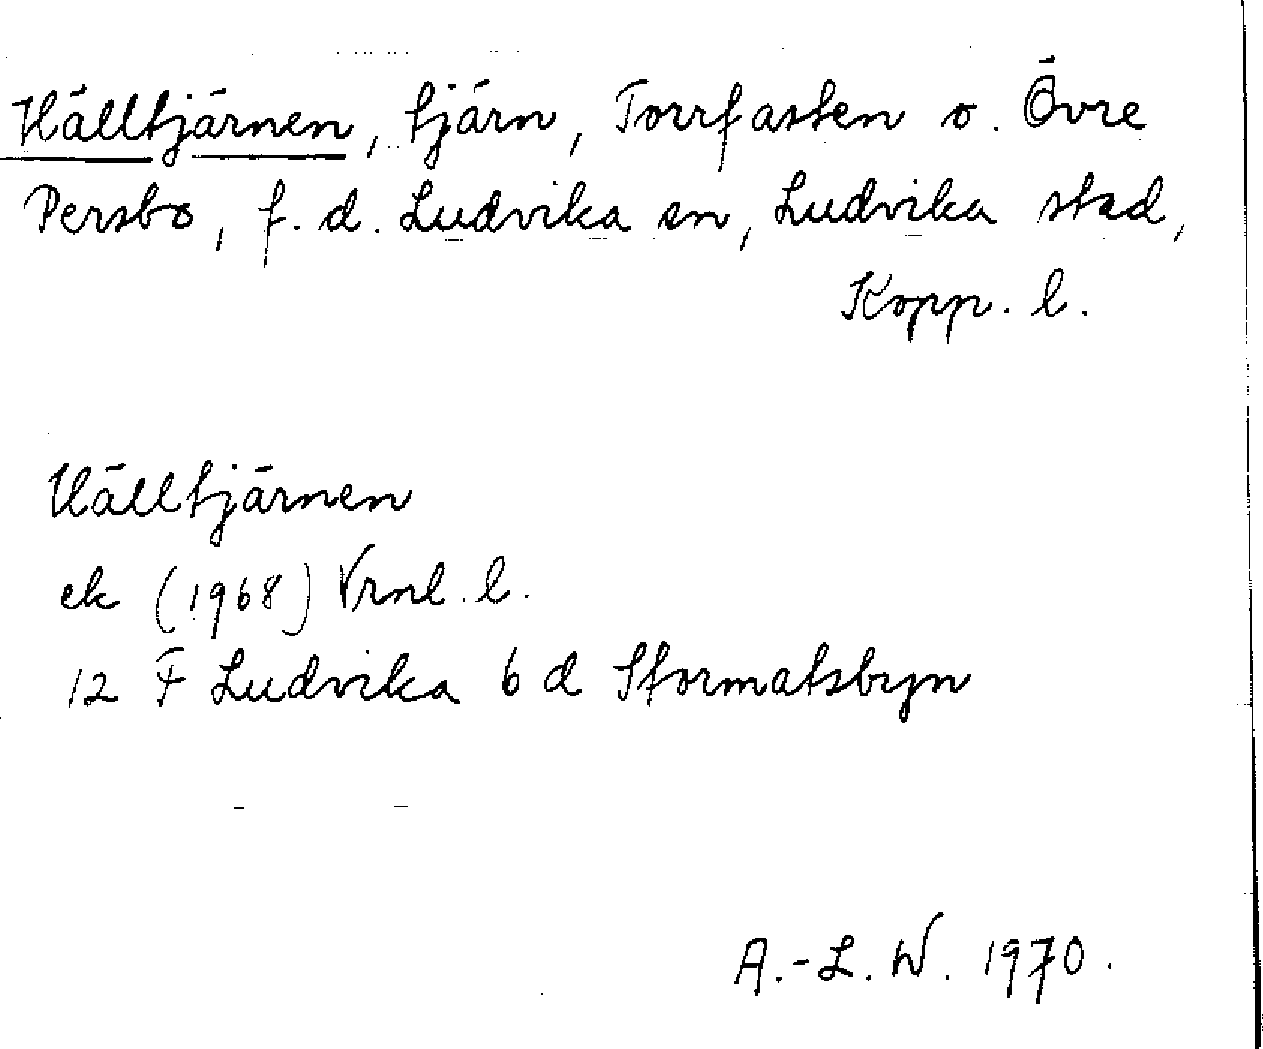 Hälltjärnen, tjärn, Torrfasten o. Övre
Persbo, f. d. Ludvika sn, Ludvika stad,
Kopp. l.
Hälltjärnen
ek (1968) Vrml. l.
12 F Ludvika 6 d Skormatsbyn
A.-L. W. 1970.